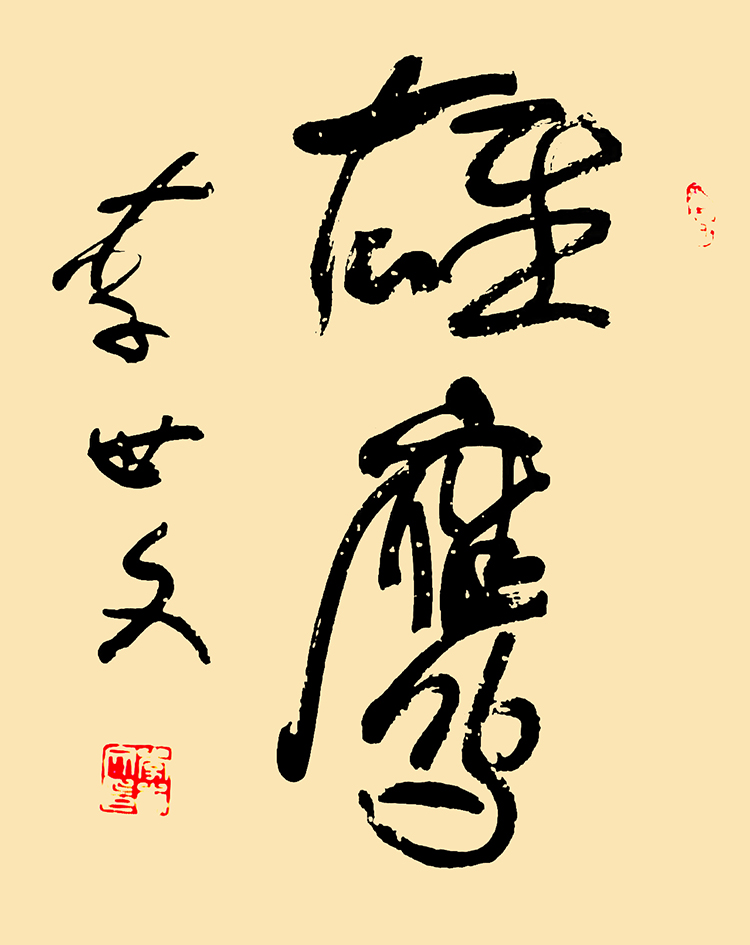 雄鹰
李世文